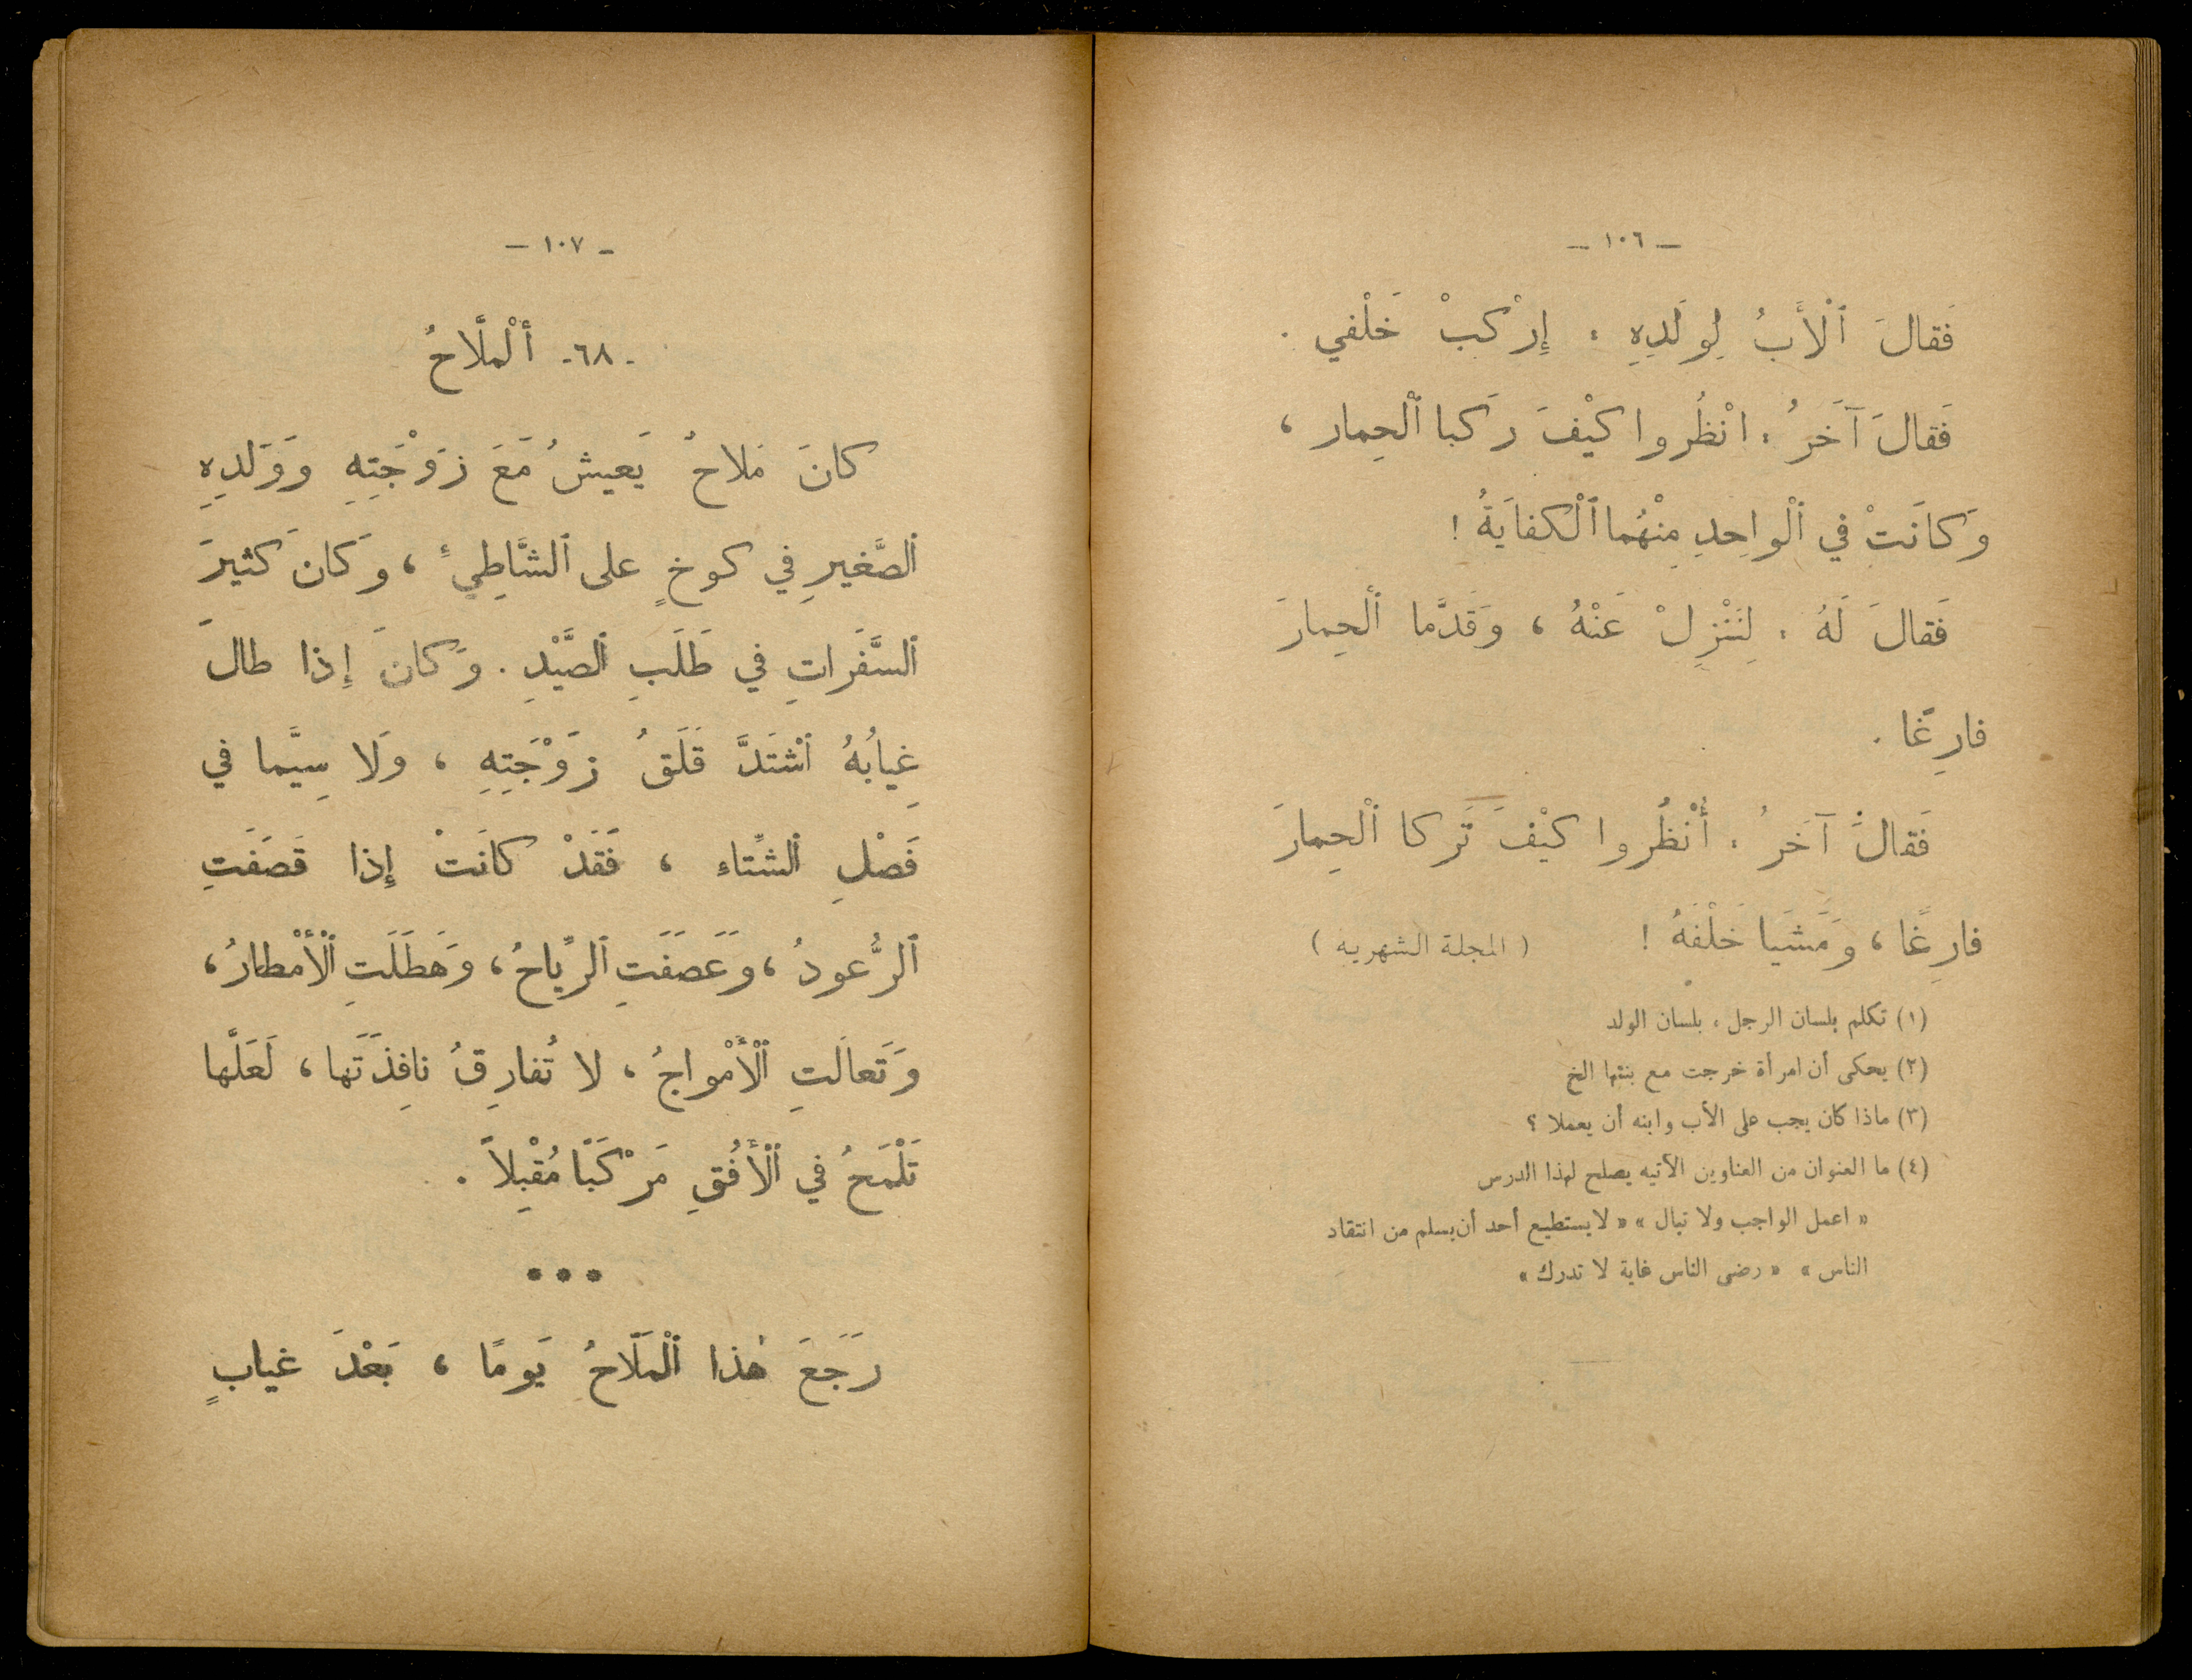 — ١٠٦ —
فَقالَ ٱلْأَبُ لِوَلَدِهِ : إِرْكَبْ خَلْفي .
فَقالَ آخَرُ : انْظُروا كَيْفَ رَكبا ٱلْحِمار ،
وَكانَتْ في ٱلْواحِدِ مِنْهُما ٱلْكفايَةُ !
فَقالَ لَهُ : لِنَنْزِلْ عَنْهُ ، وَقَدَّما ٱلْحِمارَ
فارِغًا .
فَقالَ آخَرُ : أُنْظُروا كَيْفَ تَركا ٱلْحِمارَ
فارِغًا ، وَمَشَيا خَلْفَهُ ! ( المجلة الشهريه )
(١) تكلم بلسان الرجل ، بلسان الولد
(٢) يحكى أن امرأة خرجت مع بنتها الخ
(٣) ماذا كان يجب على الأب وابنه أن يعملا ؟
(٤) ما العنوان من العناوين الآتيه يصلح لهذا الدرس
« اعمل الواجب ولا تبال » « لا يستطيع أحد أن يسلم من انتقاد
الناس » « رضى الناس غاية لا تدرك »
— ١٠٧ —
-٦٨- أَلْملَّاحُ
كانَ مَلاحٌ يَعيشُ مَعَ زَوْجَتِهِ وَوَلَدِهِ
ٱلصَّغيرِ في كوخٍ على ٱلشَّاطِيءِ ، وَكانَ كثيرَ
ٱلسَّفَراتِ في طَلَبِ ٱلصَّيْدِ . وَكانَ إِذا طالَ
غِيابُهُ ٱشْتَدَّ قَلَقُ زَوْجَتِهِ ، وَلا سِيَّما في
فَصْلِ ٱلشِّتاءِ ، فَقَدْ كانَتْ إِذا قَصَفَتِ
ٱلرُّعودُ ، وَعَصَفَتِ ٱلرِّياحُ ، وَهَطَلَتِ ٱلْأَمْطارُ ،
وَتَعالَتِ ٱلْأَمْواجُ ، لا تُفارِقُ نافِذَتَها ، لَعَلَّها
تَلْمَحُ في ٱلْأُفُقِ مَرْكَبًا مُقْبِلاً .
•••
رَجَعَ هٰذا ٱلْمَلَّاحُ يَومًا ، بَعْدَ غيابٍ